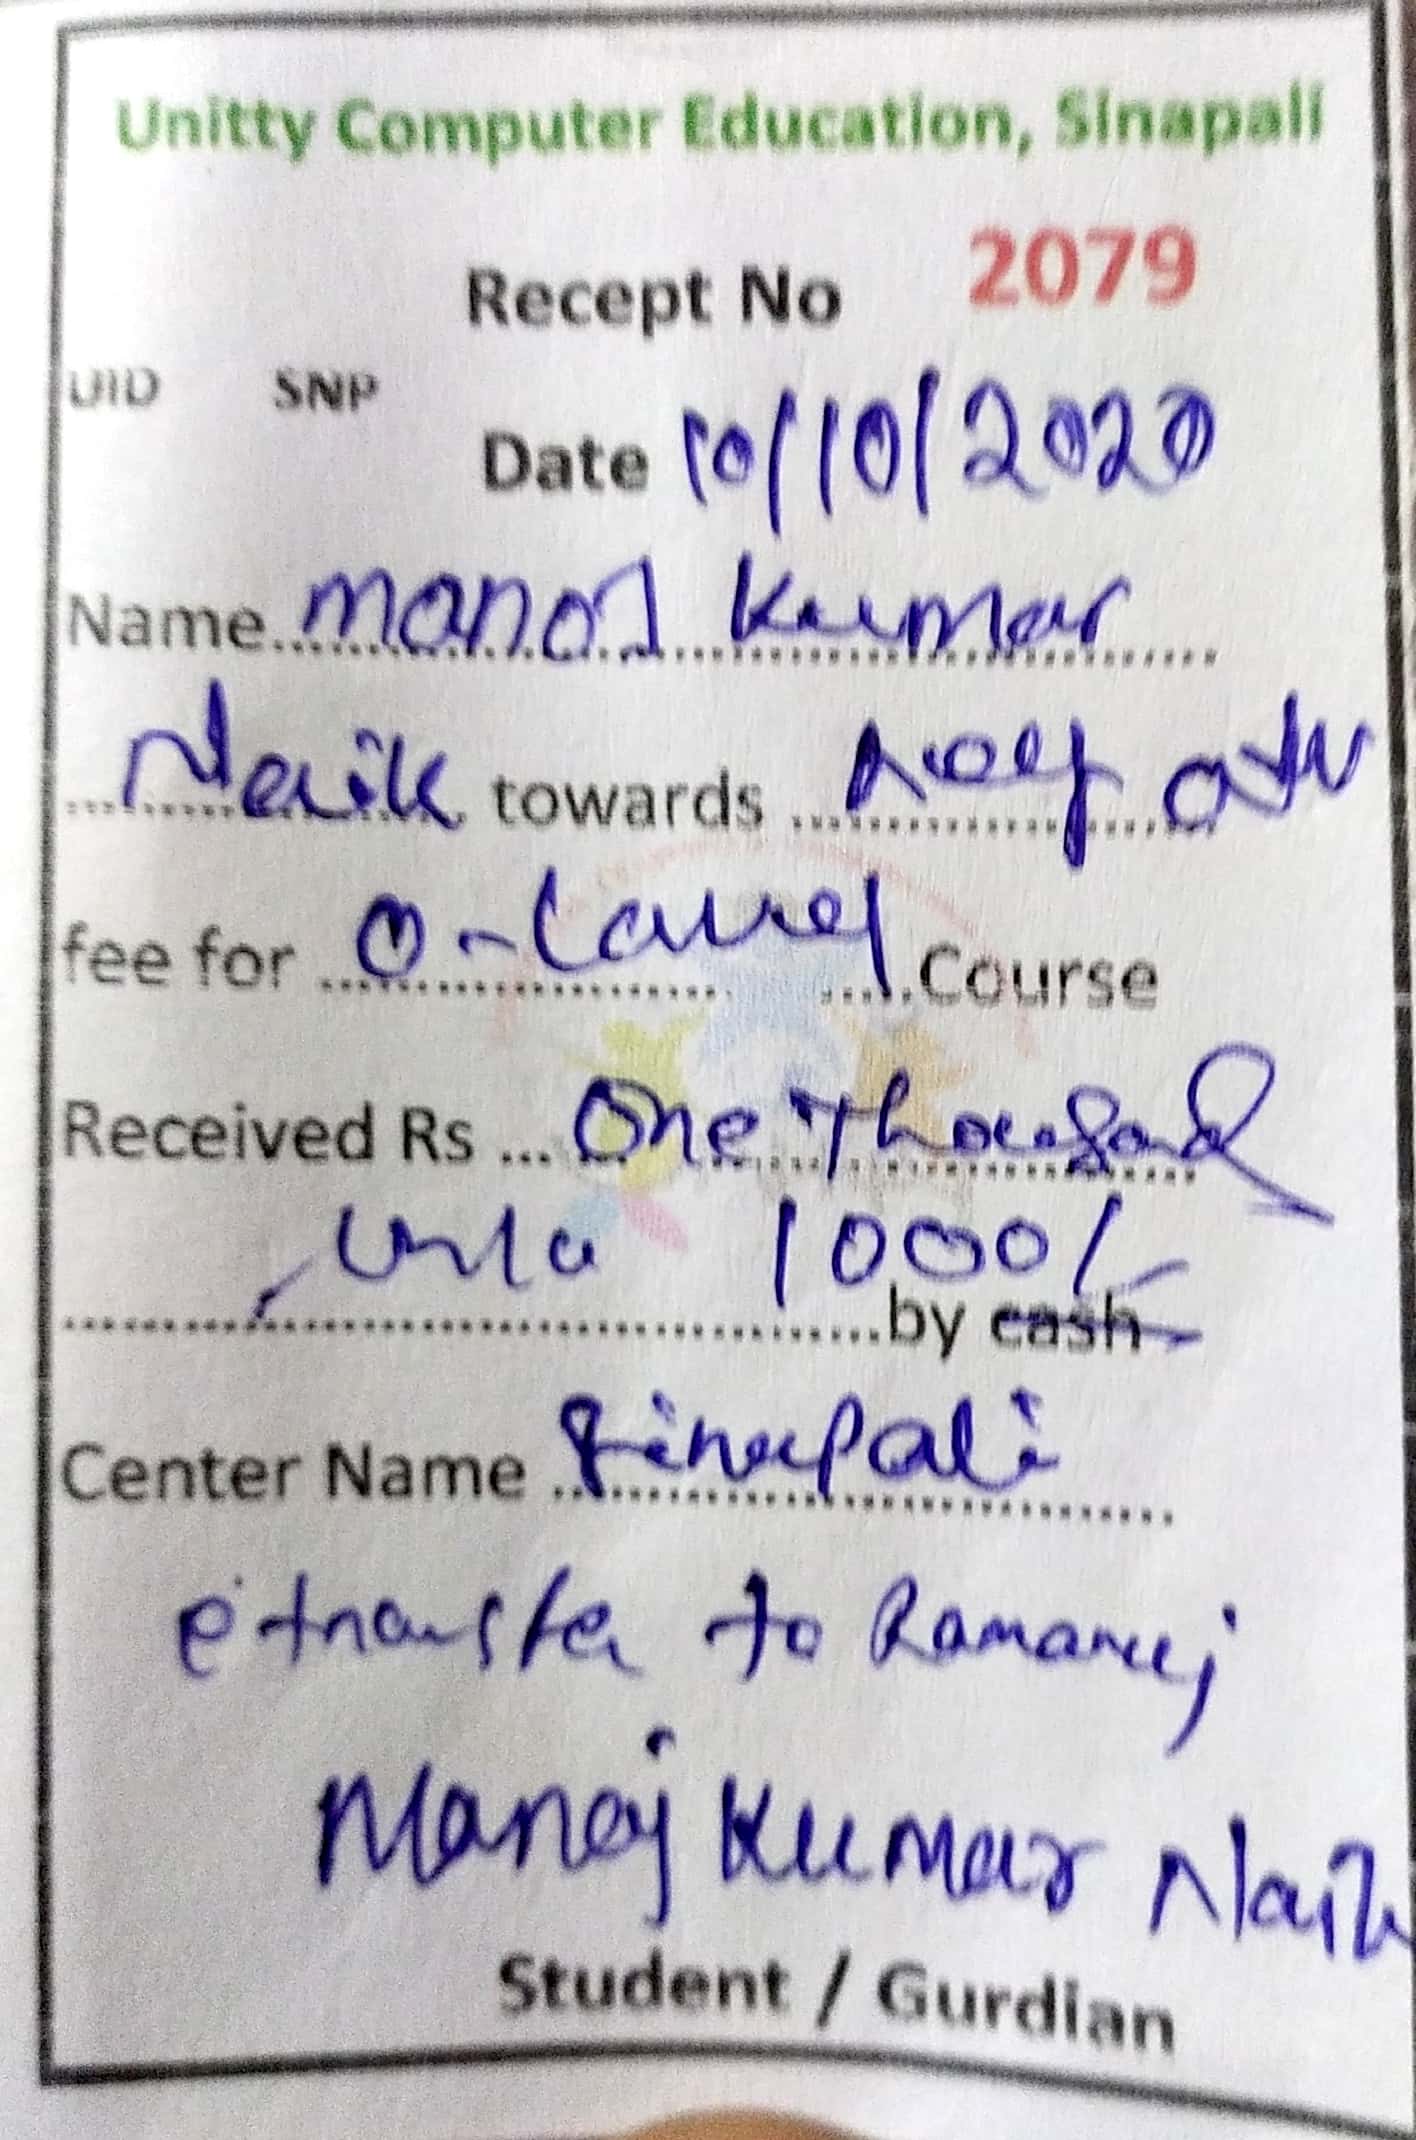 Unitty Computer Education, Sinapali
Recept No 2079
UID SNP
Date 10/10/2020
Name Manoj Kumar
Naik towards
fee for O-Lavel Course
Received Rs ... One Thousand
only 1000/-
by cash
Center Name Sinapali
e transfer to Ramanuj
Manoj Kumar Naik
Student / Gurdian